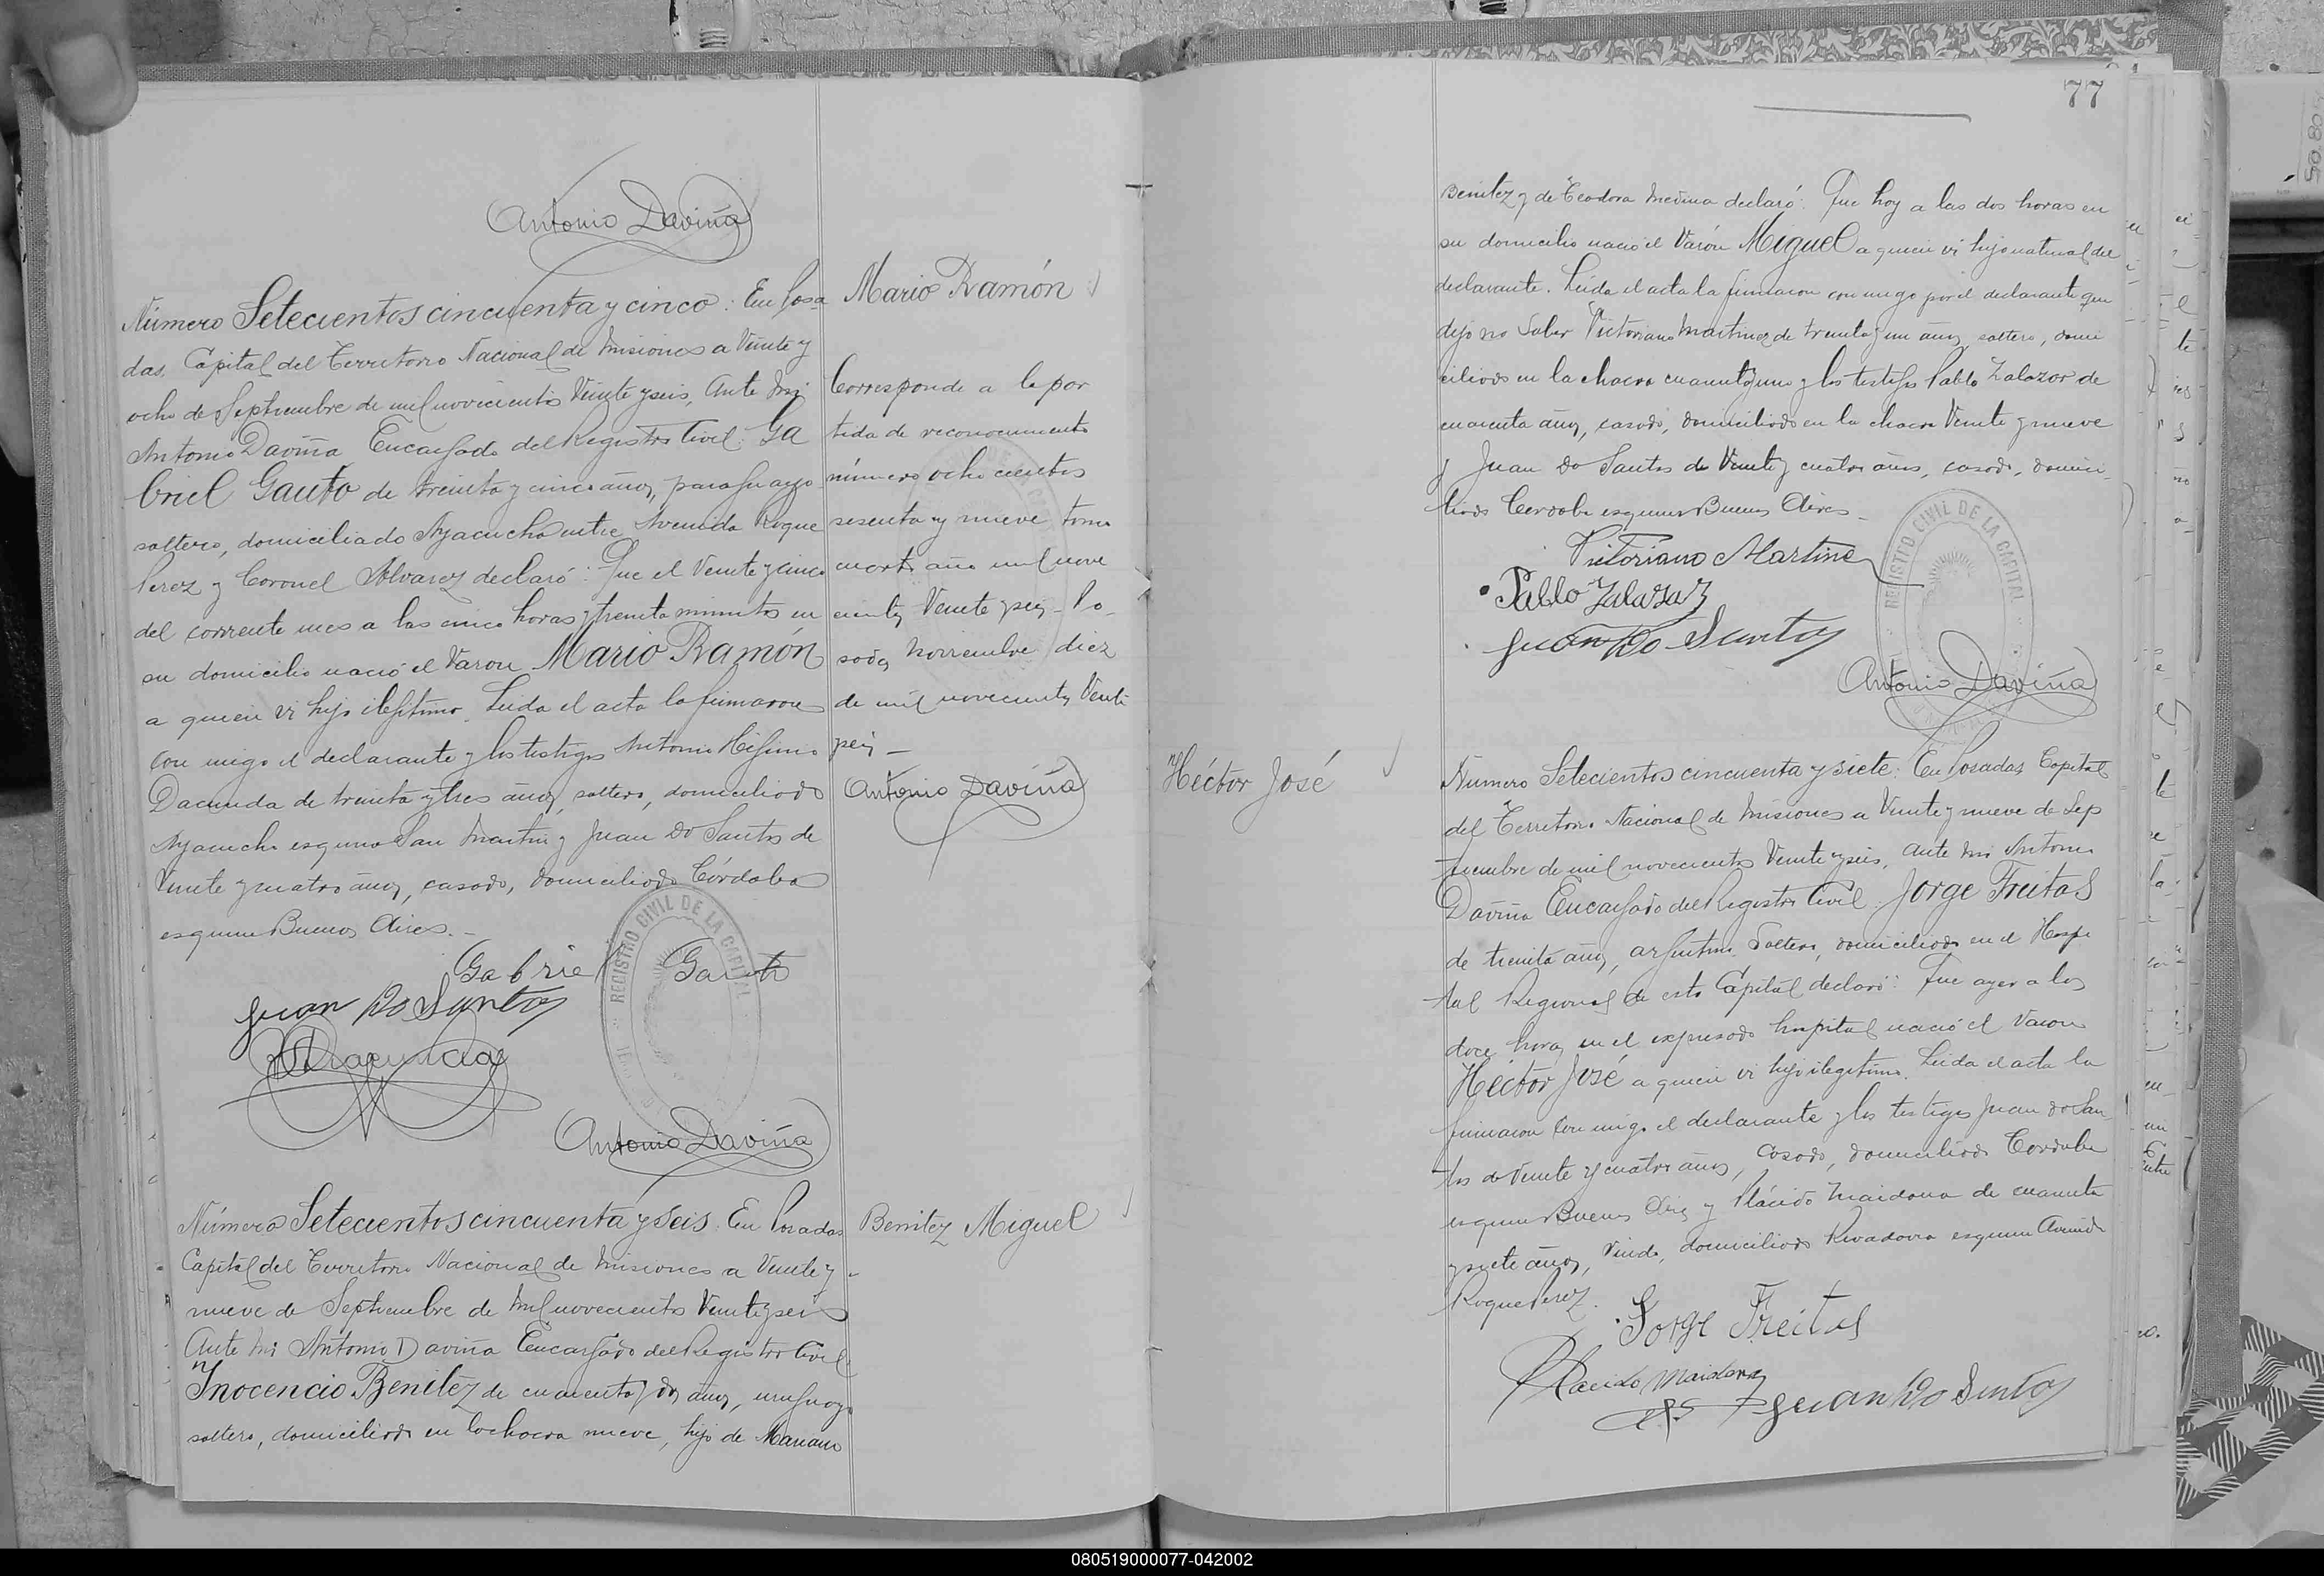 Antonio Daviña
Número Setecientos cincuenta y cinco: En Posa
das, Capital del Territorio Nacional de Misiones a Veinte y
ocho de Septiembre de mil novecientos Veinte y seis, Ante mi
Antonio Daviña Encargado del Registro Civil: Ga
briel Gauto de treinta y cinco años, paraguayo
soltero, domiciliado Ayacucho entre Avenida Roque
Perez y Coronel Alvarez declaró: Que el Veinte y cinco
del corriente mes a las cinco horas y treinta minutos en
su domicilio nació el Varon Mario Ramón
a quien vi hijo ilegitimo. Leida el acta la firmaron
con migo el declarante y los testigos Antonio Higinio
Dacunda de treinta y tres años, soltero, domiciliado
Ayacucho esquina San Martin y Juan do Santos de
Veinte y cuatro años, casado, domiciliado Córdoba
esquina Buenos Aires.-
Gabriel Gauto
Juan Do Santos
Antonio Daviña
Mario Ramón
Corresponde a la par
tida de reconocimiento
número ocho cientos
sesenta y nueve, tomo
cuarto año mil nove
cientos Veinte y seis - Po-
sadas, Noviembre diez
de mil novecientos Veinti
seis -
Antonio Daviña
Número Setecientos cincuenta y seis: En Posadas
Capital del Territorio Nacional de Misiones a Veinte y
nueve de Septiembre de mil novecientos Veinte y seis
Ante mi Antonio Daviña Encargado del Registro Civil
Inocencio Benitez de cuarenta y dos años, uruguayo
soltero, domiciliado en la chacra nueve, hijo de Mariano
Benitez Miguel
77
Benitez y de Teodora Medina declaró: Que hoy a las dos horas en
su domicilio nació el Varón Miguel a quien vi hijo natural del
declarante. Leida el acta la firmaron con migo por el declarante que
dijo no saber Victoriano Martinez de treinta y un años, soltero, domi
ciliado en la chacra cuarenta y uno y los testigos Pablo Zalazar de
cuarenta años, casado, domiciliado en la chacra Veinte y nueve
y Juan do Santos de Veinte y cuatro años, casado, domici-
liado Cordoba esquina Buenos Aires -
Victoriano Martinez
Pablo Zalazar
Juan Do Santos
REGISTRO CIVIL DE LA CAPITAL
Antonio Daviña
Héctor José
Número Setecientos cincuenta y siete: En Posadas Capital
del Territorio Nacional de Misiones a Veinte y nueve de Sep
tiembre de mil novecientos Veinte y seis, Ante mi Antonio
Daviña Encargado del Registro Civil: Jorge Freitas
de treinta años, argentino, Soltero, domiciliado en el Hospi
tal Regional de esta Capital declaró: Que ayer a las
doce horas en el expresado hospital nació el Varon
Héctor José a quien vi hijo ilegitimo. Leida el acta la
firmaron con migo el declarante y los testigos Juan do San
tos de Veinte y cuatro años, Casado, domiciliado Cordoba
esquina Buenos Aires y Plácido Maidana de cuarenta
y siete años, Viudo, domiciliado Rivadavia esquina Avenida
Roque Perez.
Jorge Freitas
Placido Maidana
Juan Do Santos
REGISTRO CIVIL DE LA CAPITAL
080519000077-042002